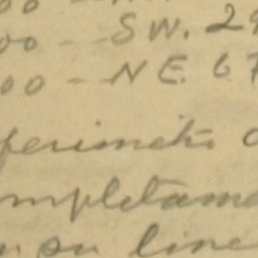 00 - SW. 29
00 - NE. 67
perimetro
mpletame
su line